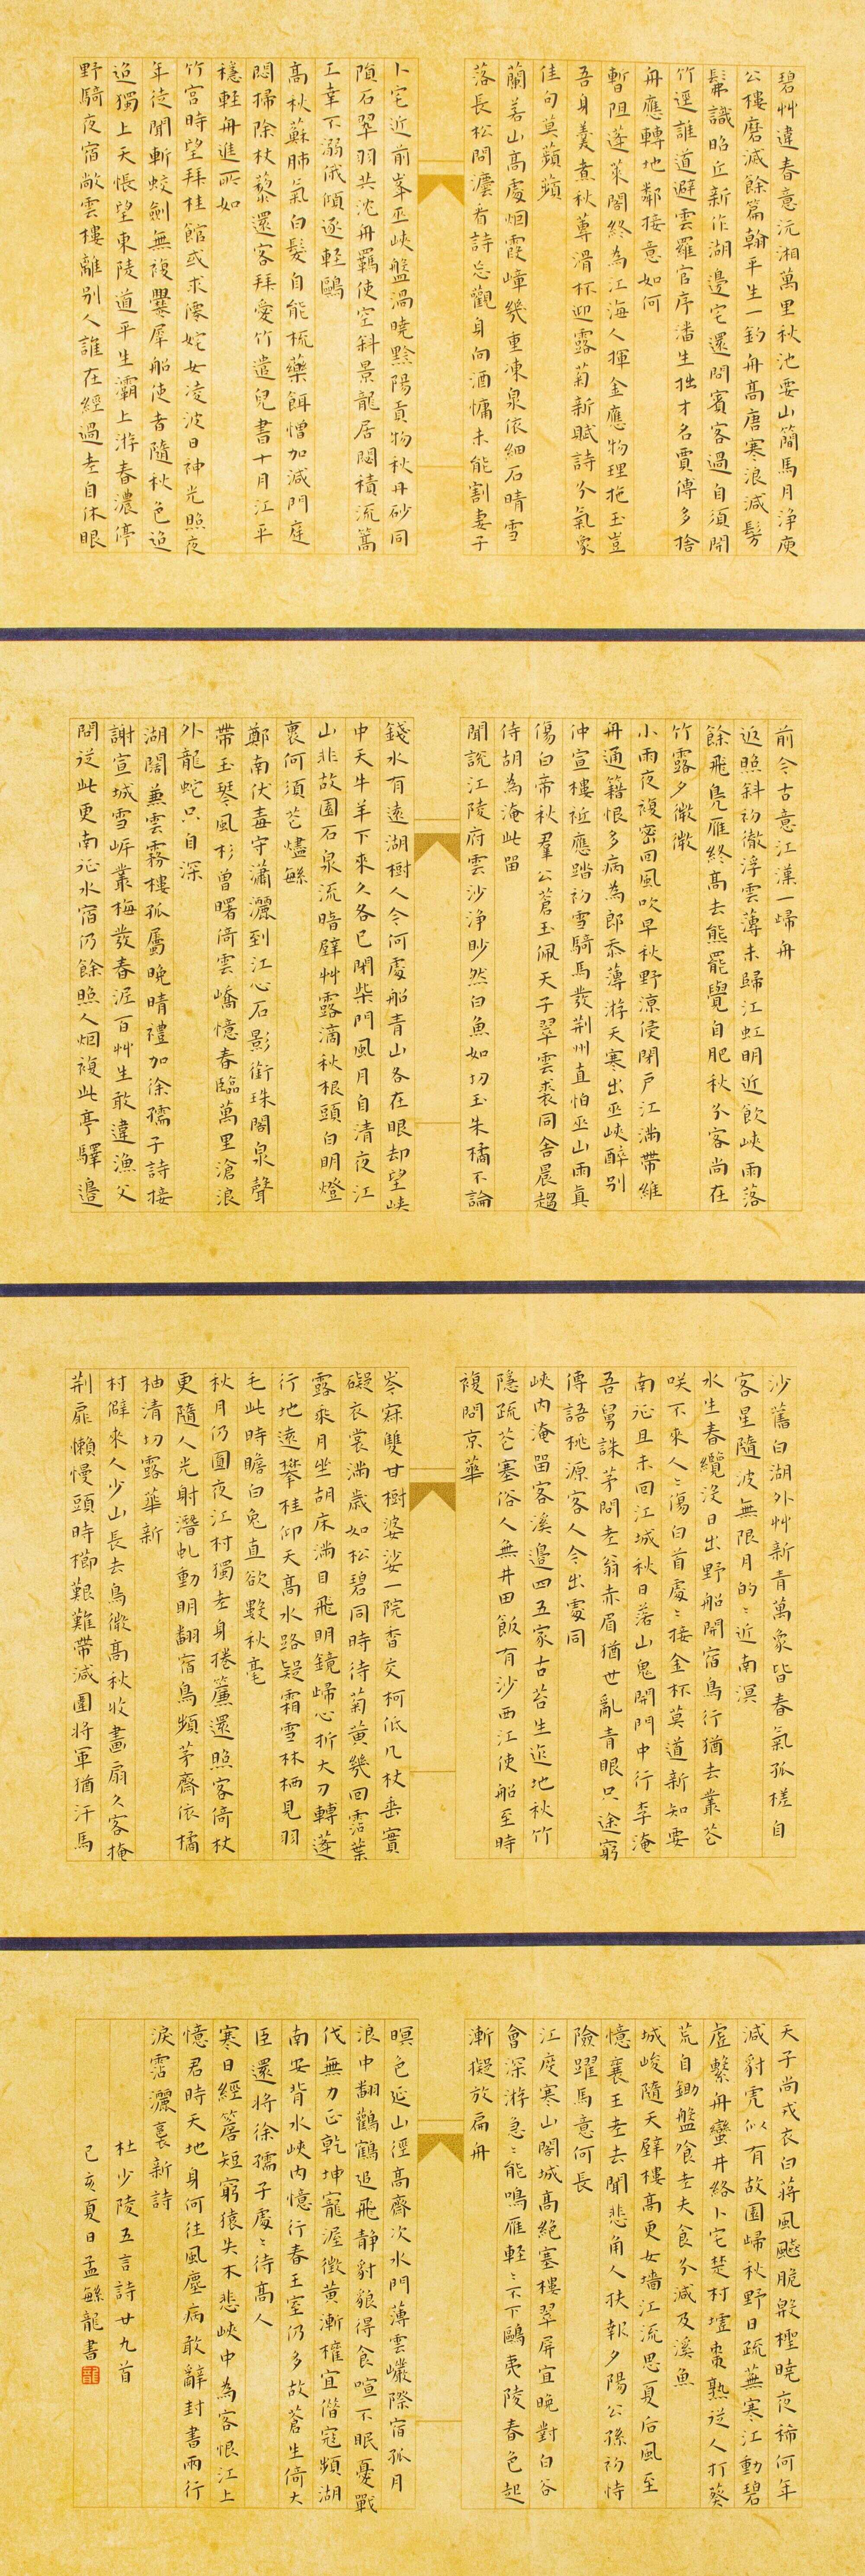 碧艸違春意沅湘萬里秋池要山簡馬月淨庾
公樓磨滅餘篇翰平生一釣舟高唐寒浪減髣
髴識昭丘新作湖邊宅還問賓客過自須開
竹逕誰道避雲羅官序潘生拙才名賈傅多捨
舟應轉地鄰接意如何
暫阻蓬萊閣終為江海人揮金應物理拖玉豈
吾身羹煮秋蓴滑杯迎露菊新賦詩分氣象
佳句莫蘋蘋
蘭若山高處烟霞嶂幾重凍泉依細石晴雪
落長松問灋看詩忘觀身向酒慵未能割妻子
卜宅近前峯巫峽盤渦曉黔陽貢物秋丹砂同
隕石翠羽共沈舟羈使空斜景龍居閟積流篙
工幸不溺俄頃逐輕鷗
高秋蘇肺氣白髮自能梳藥餌憎加減門庭
悶掃除杖藜還客拜愛竹遣兒書十月江平
穩輕舟進所如
竹宮時望拜桂館或求僊姹女凌波日神光照夜
年徒聞斬蛟劍無複爨犀船使者隨秋色迢
迢獨上天悵望東陵道平生灞上游春濃停
野騎夜宿敞雲樓離別人誰在經過老自休眼
前今古意江漢一歸舟
返照斜初徹浮雲薄未歸江虹明近飲峽雨落
餘飛鳧雁終高去熊羆覺自肥秋分客尚在
竹露夕微微
小雨夜複密回風吹早秋野涼侵閉戶江滿帶維
舟通籍恨多病為郎忝薄游天寒出巫峽醉別
仲宣樓袛應踏初雪騎馬發荆州直怕巫山雨真
傷白帝秋羣公蒼玉佩天子翠雲裘同舍晨趨
侍胡為淹此留
聞說江陵府雲沙淨眇然白魚如切玉朱橘不論
錢水有遠湖樹人今何處船青山各在眼却望峽
中天牛羊下來久各已閉柴門風月自清夜江
山非故園石泉流暗壁艸露滴秋根頭白明燈
裏何須花燼緐
鄭南伏毒守瀟灑到江心石影銜珠閣泉聲
帶玉琴風杉曾曙倚雲嶠憶春臨萬里滄浪
外龍蛇只自深
湖闊兼雲霧樓孤屬晚晴禮加徐孺子詩接
謝宣城雪岸叢梅發春泥百艸生敢違漁父
問從此更南征水宿仍餘照人烟複此亭驛邊
沙舊白湖外艸新青萬象皆春氣孤槎自
客星隨波無限月的〻近南溟
水生春纜沒日出野船開宿鳥行猶去叢花
咲不來人〻傷白首處〻接金杯莫道新知要
南征且未回江城秋日落山鬼閉門中行李淹
吾舅誅茅問老翁赤眉猶世亂青眼只途窮
傳語桃源客人今出處同
峽內淹留客溪邊四五家古苔生迮地秋竹
隱疏花塞俗人無井田飯有沙西江使船至時
複問京華
岑寂雙甘樹婆娑一院香交柯低几杖垂實
礙衣裳滿歲如松碧同時待菊黃幾回霑葉
露乘月坐胡床滿目飛明鏡歸心折大刀轉蓬
行地遠攀桂仰天高水路疑霜雪林栖見羽
毛此時瞻白兔直欲數秋毫
秋月仍圓夜江村獨老身捲簾還照客倚杖
更隨人光射潛虯動明翻宿鳥頻茅齋依橘
柚清切露華新
村僻來人少山長去鳥微高秋收畫扇久客掩
荆扉懶慢頭時櫛艱難帶減圍將軍猶汗馬
天子尚戎衣白蔣風飈脆殷檉曉夜稀何年
減豺虎似有故園歸秋野日疏蕪寒江動碧
虛繫舟蠻井絡卜宅楚村墟棗熟從人打葵
荒自鋤盤飧老夫食分減及溪魚
城峻隨天壁樓高更女墻江流思夏后風至
憶襄王老去聞悲角人扶報夕陽公孫初恃
險躍馬意何長
江度寒山閣城高絕塞樓翠屏宜晚對白谷
會深游急〻能鳴雁輕〻不下鷗夷陵春色起
漸擬放扁舟
暝色延山徑高齋次水門薄雲巖際宿孤月
浪中翻鸛鶴追飛靜豺狼得食喧不眠憂戰
伐無力正乾坤寵渥徵黃漸權宜借寇頻湖
南安背水峽內憶行春王室仍多故蒼生倚大
臣還將徐孺子處〻待高人
寒日經簷短窮猿失木悲峽中為客恨江上
憶君時天地身何往風塵病敢辭封書兩行
淚霑灑裛新詩
杜少陵五言詩廿九首
己亥夏日孟緐龍書
龍